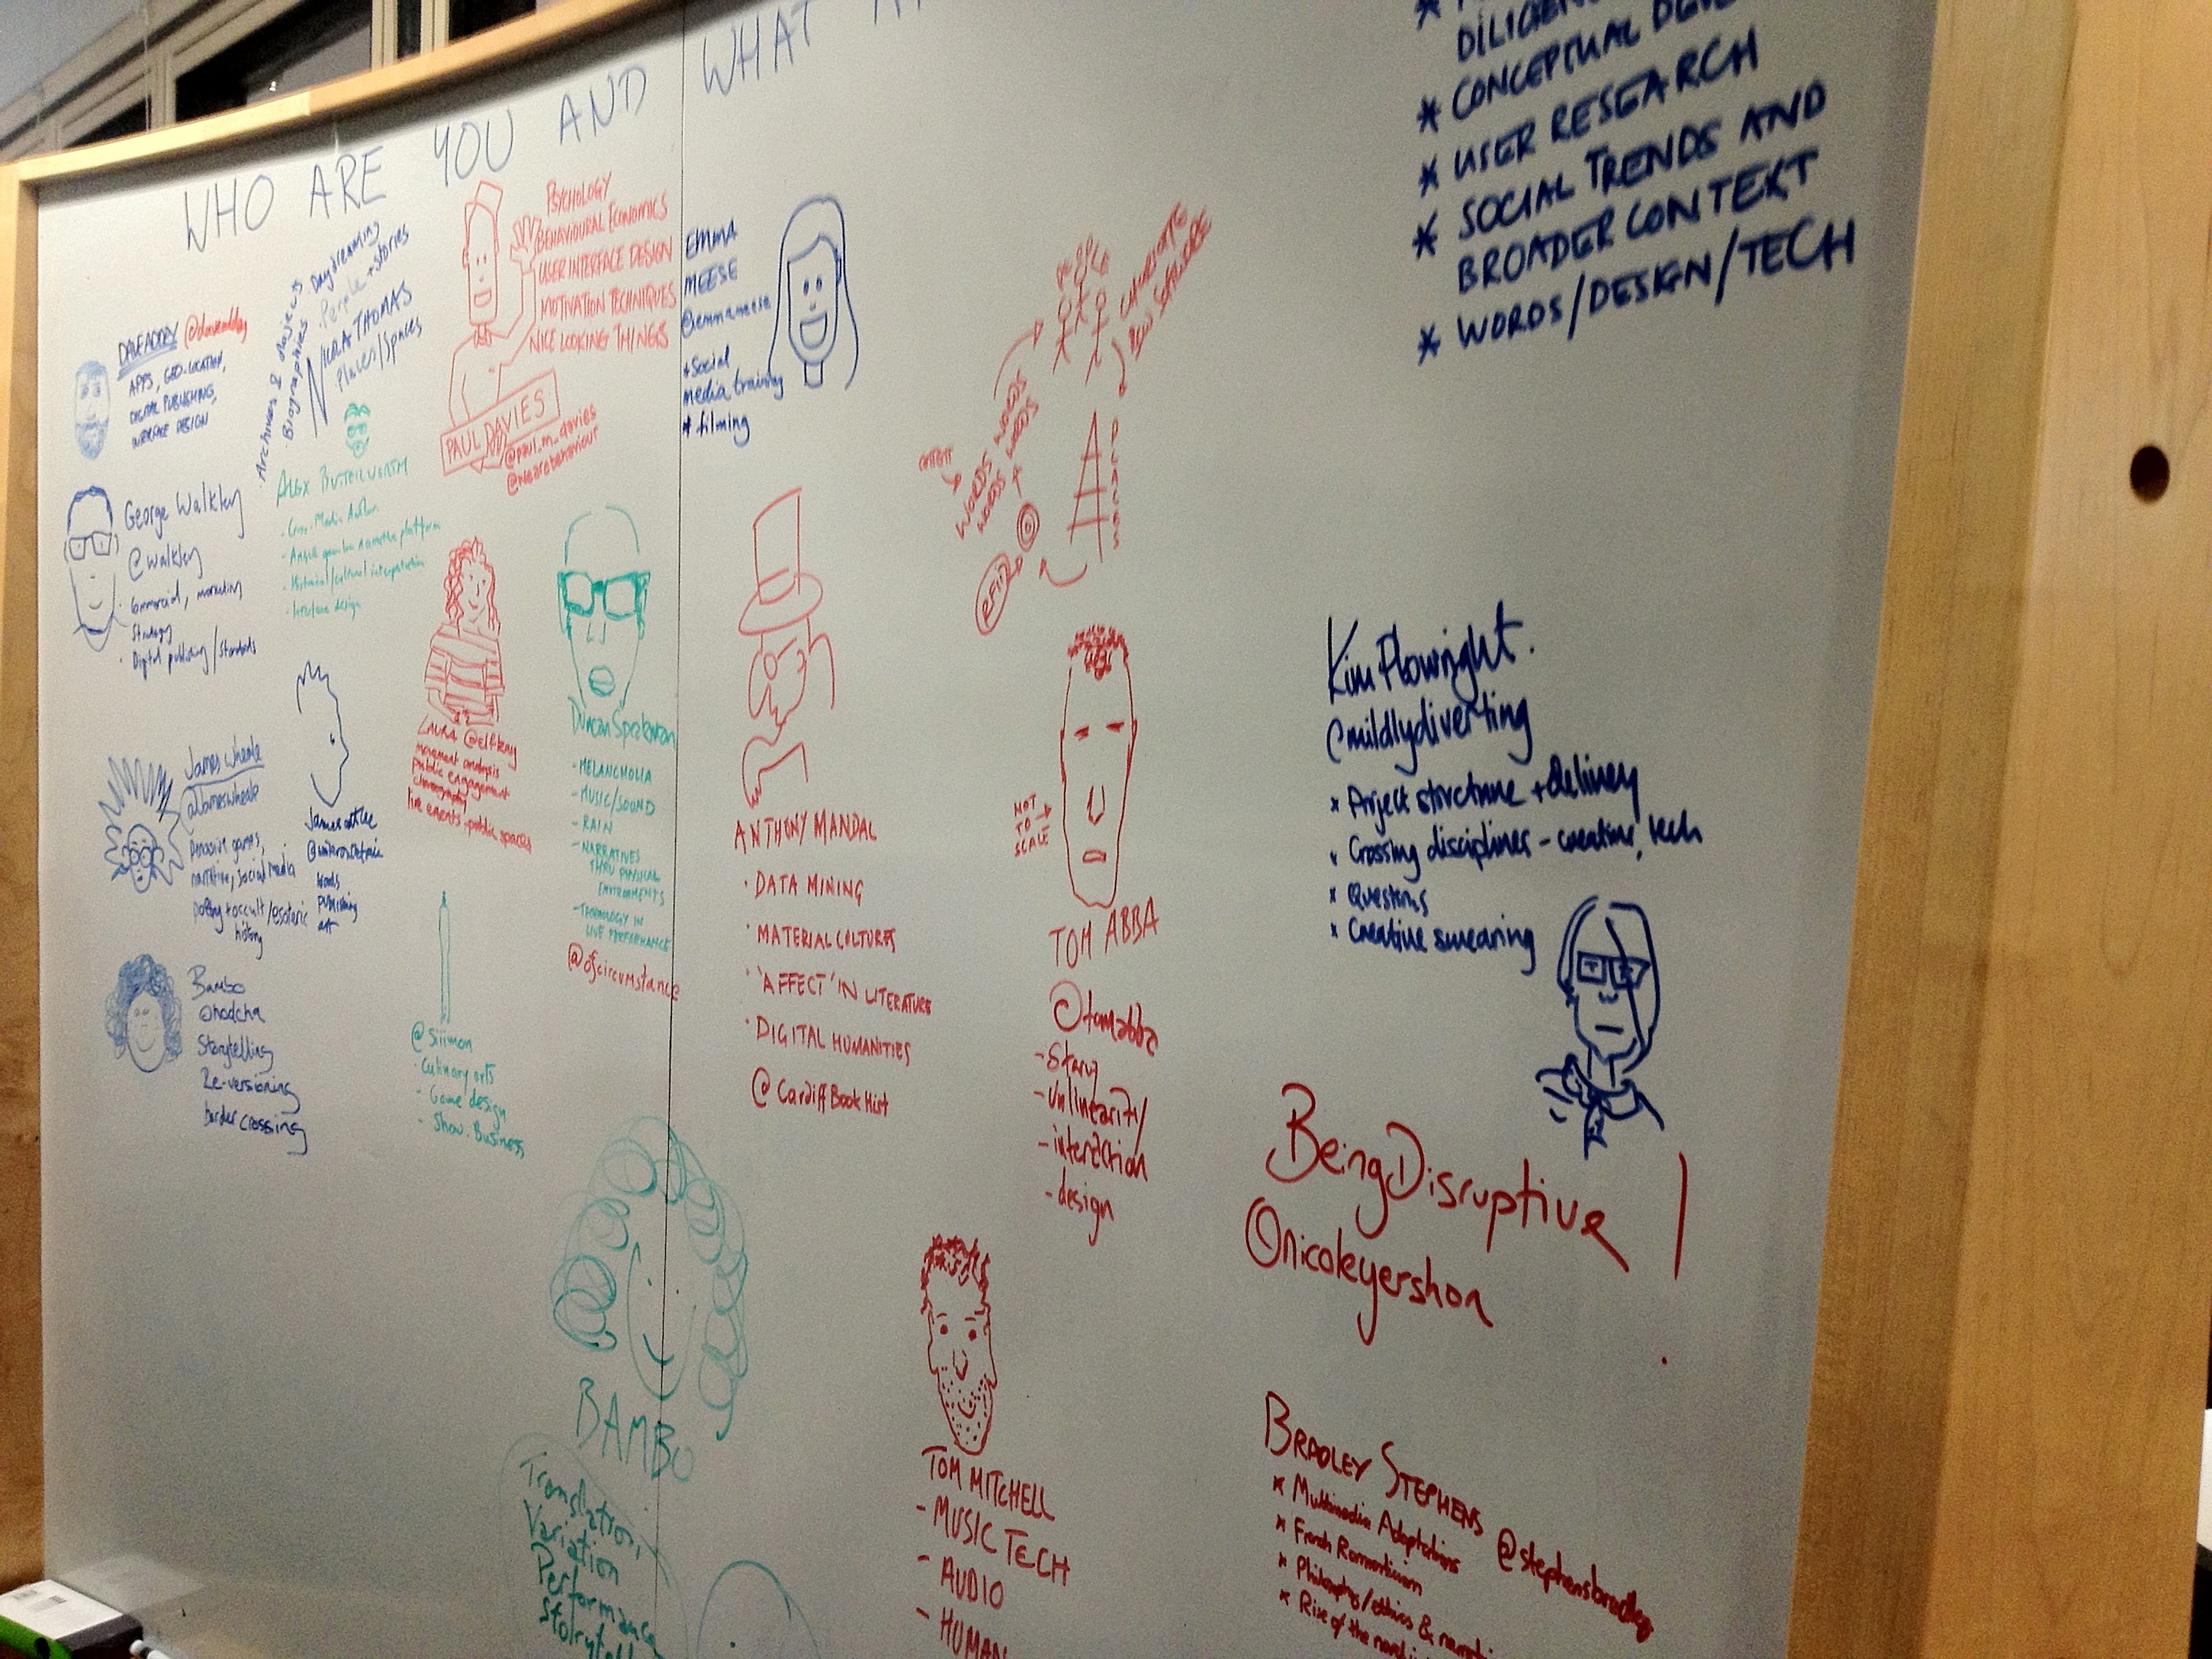 WHO ARE YOU AND WHAT
DILIGEN
* CONCEPTUAL DEVE
* USER RESEARCH
* SOCIAL TRENDS AND
BROADER CONTEXT
* WORDS/DESIGN/TECH
DAVE ADDEY @daveaddey
APPS, GEO-LOCATION,
DIGITAL PUBLISHING,
INTERFACE DESIGN
Archives & objects
Biographies
Daydreaming
People + stories
NICOLA THOMAS
Places/Spaces
PSYCHOLOGY
BEHAVIOURAL ECONOMICS
USER INTERFACE DESIGN
MOTIVATION TECHNIQUES
NICE LOOKING THINGS
PAUL DAVIES
@paul_m_davies
@nearbehaviour
EMMA
MEESE
@emmameese
* Social
media training
* filming
PEOPLE
NEW
WORDS WORDS
WORDS WORDS
PLACES
RFID
George Walkley
@walkley
Commercial, marketing
Strategy
Digital publishing/standards
ALEX BUTTERWORTH
- Cross Media Author
- narrative platform
- Historical/cultural interpretation
- Interface design
LAURA @elfkay
movement analysis
public engagement
choreography
live events - public spaces
Duncan Speakman
- MELANCHOLIA
- MUSIC/SOUND
- RAIN
- NARRATIVES
THRU PHYSICAL
ENVIRONMENTS
- TECHNOLOGY IN
LIVE PERFORMANCE
@ofcircumstance
James Wheale
@Jameswheale
Pervasive games,
narrative, social media
poetry + occult/esoteric
history
James Attlee
Words
Publishing
art
Bambo
@hodcha
Storytelling
Re-versioning
border crossing
@siiimon
- Culinary arts
- Game design
- Show. Business
ANTHONY MANDAL
· DATA MINING
· MATERIAL CULTURES
· 'AFFECT' IN LITERATURE
· DIGITAL HUMANITIES
@CardiffBookHist
NOT
TO
SCALE
TOM ABBA
@tomabba
- Story
- Unlinearity/
- interaction
- design
Kim Plowright.
@mildlydiverting
* Project structure + delivery
* Crossing disciplines - creative, tech
* Questions
* Creative swearing
Being Disruptive !
@nicoleyershon
BAMBO
Translation,
Variation
Performance
Storytell
TOM MITCHELL
- MUSIC TECH
- AUDIO
- HUMAN
BRADLEY STEPHENS @stephensbradley
* Multimedia Adaptations
* French Romanticism
* Philosophy/ethics & narrati
* Rise of the novel